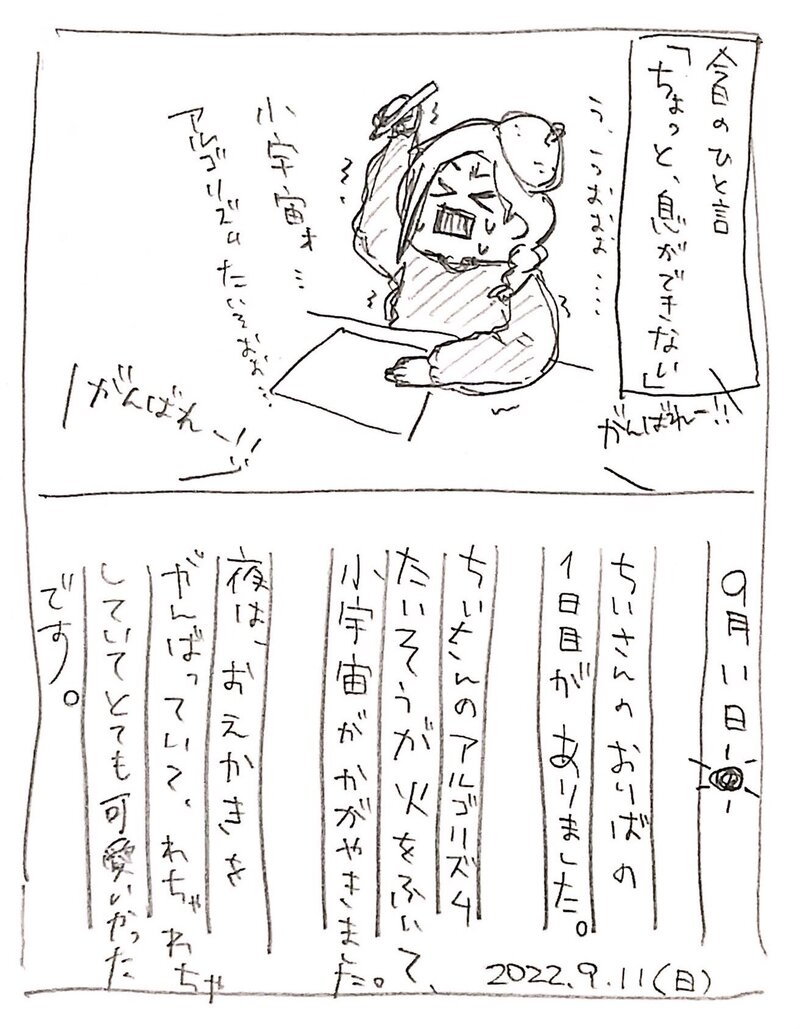 今日のひと言
「ちょっと、息ができない」
う、うおおおお……
小宇宙ォ…
アルゴリズムたいそおお…
がんばれー!!
がんばれー!!
9月11日
ちいさんのおりばの
1日目がありました。
ちいさんのアルゴリズム
たいそうが火をふいて、
小宇宙がかがやきました。
夜は、おえかきを
がんばっていて、わちゃわちゃ
していてとても可愛いかった
です。
2022.9.11(日)